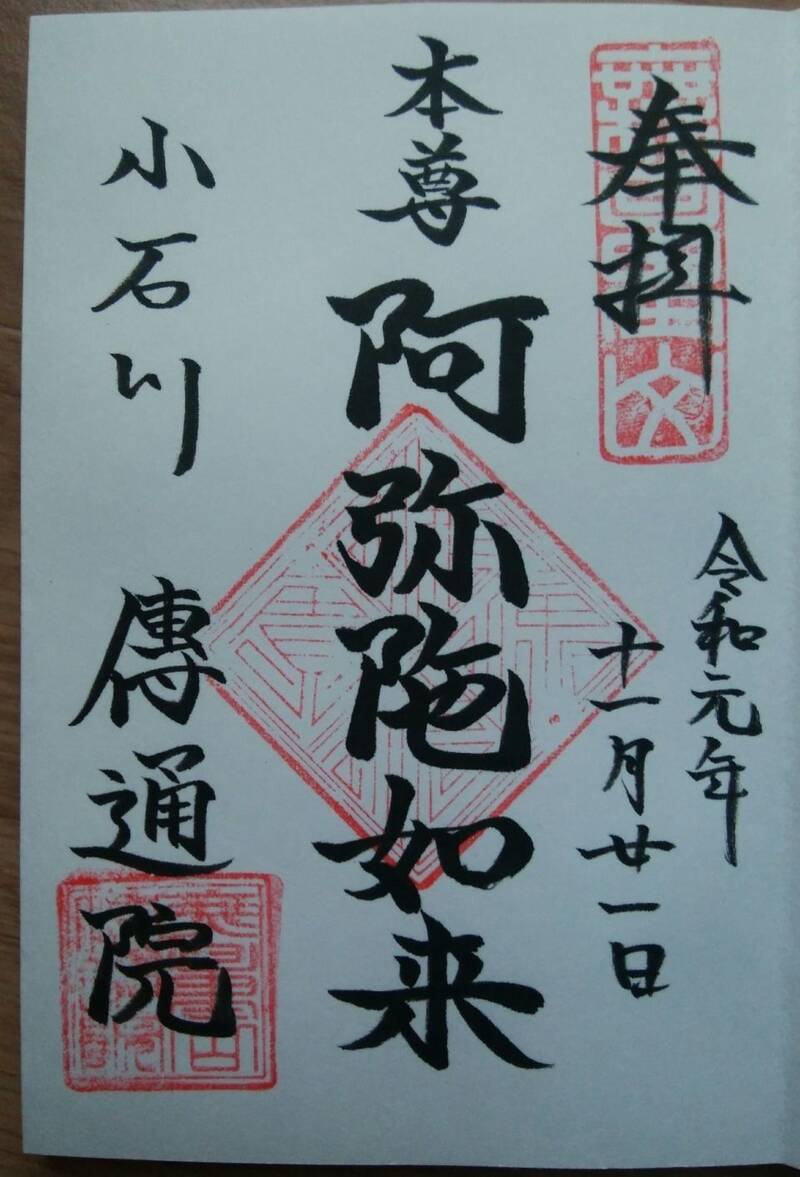 奉拝
令和元年
十一月廿一日
本尊
阿弥陀如来
小石川
傳通院